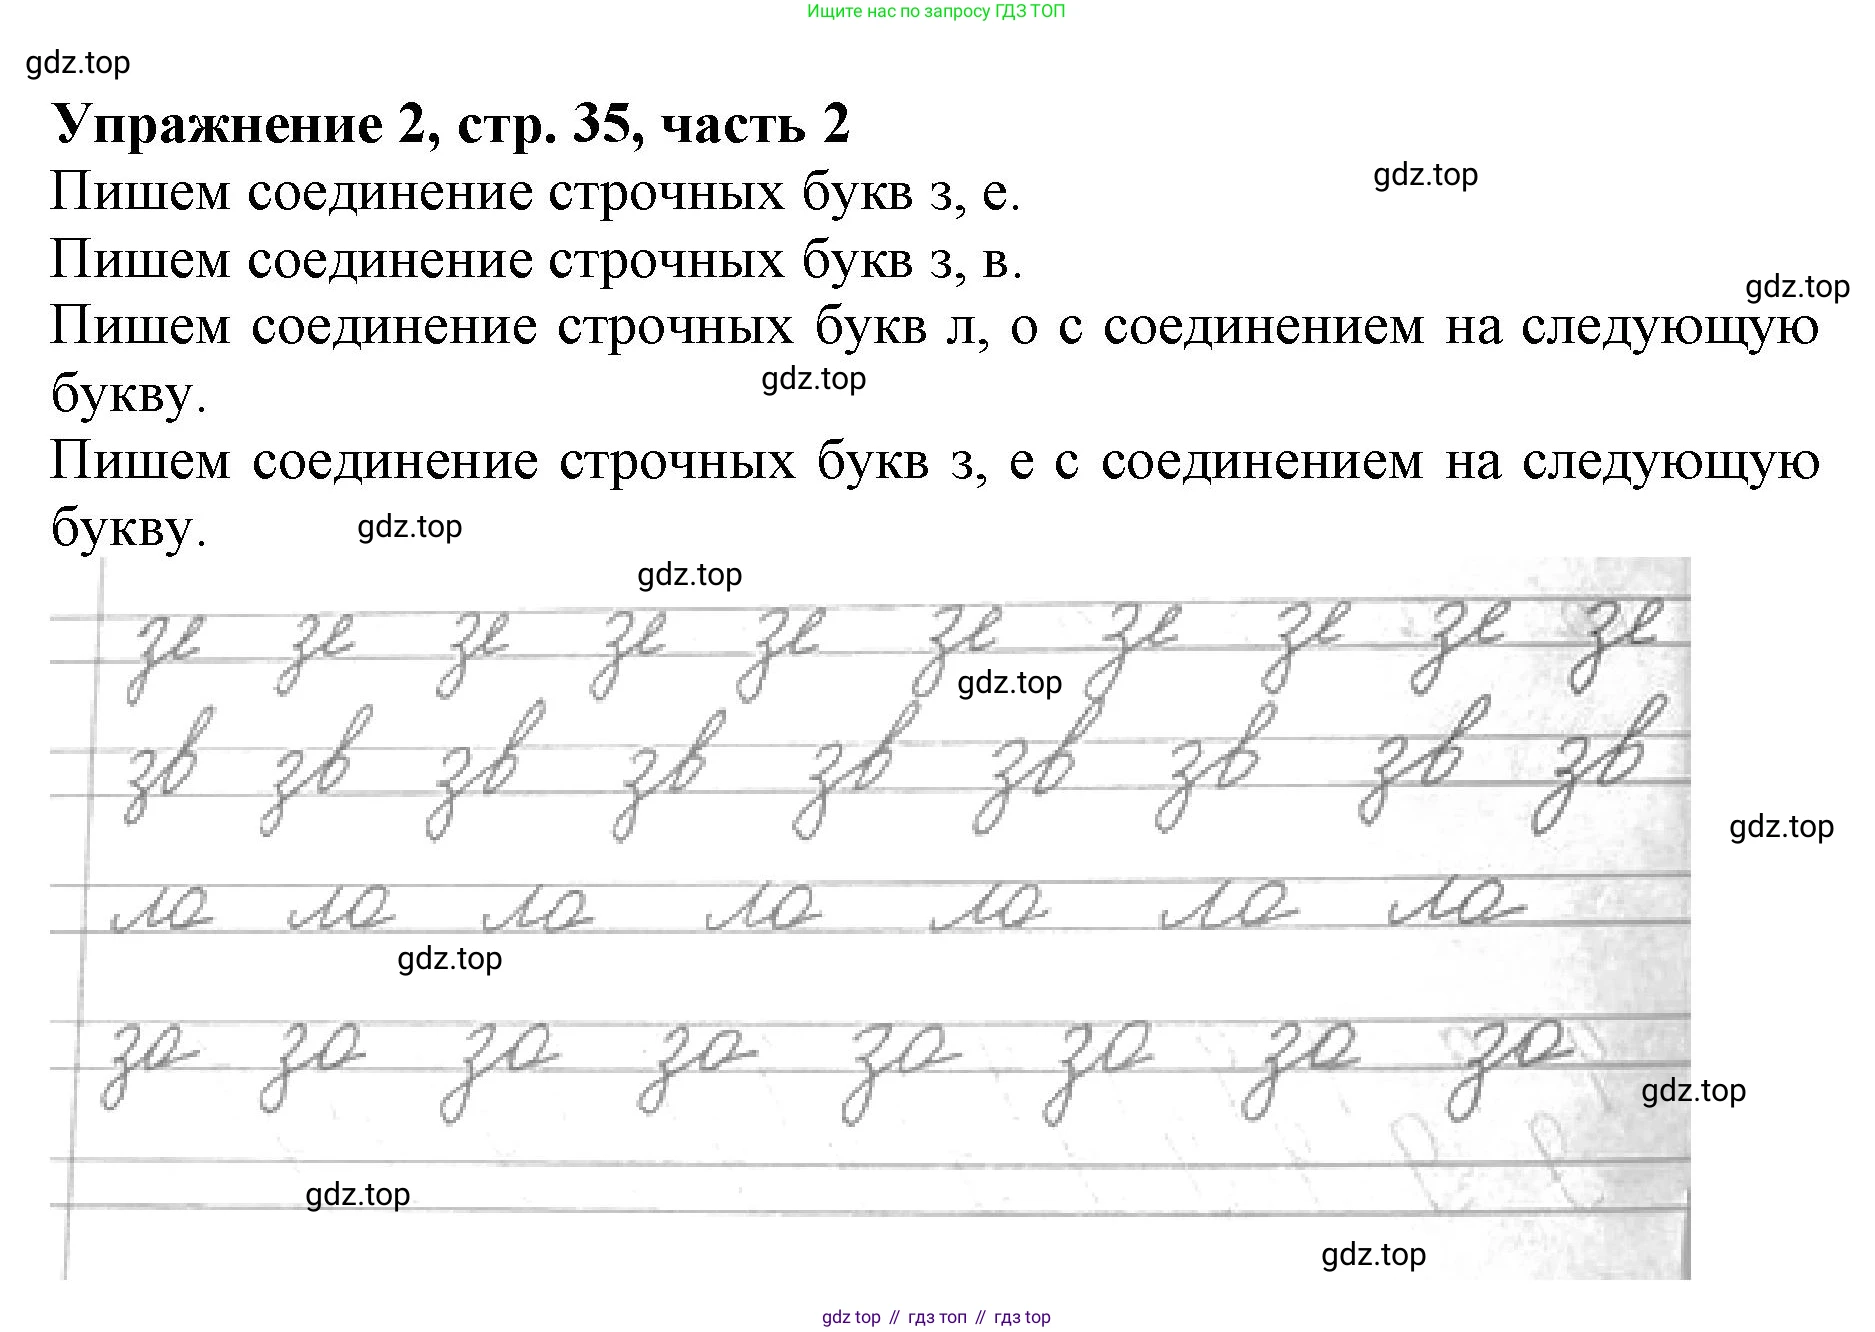 Ищите нас по запросу ГДЗ ТОП
gdz.top
Упражнение 2, стр. 35, часть 2
Пишем соединение строчных букв з, е.
gdz.top
Пишем соединение строчных букв з, в.
gdz.top
Пишем соединение строчных букв л, о с соединением на следующую
букву.
gdz.top
Пишем соединение строчных букв з, е с соединением на следующую
букву.
gdz.top
gdz.top
зе зе зе зе зе зе зе зе зе зе
gdz.top
зв зв зв зв зв зв зв зв зв
gdz.top
ло ло ло ло ло ло ло
gdz.top
зо зо зо зо зо зо зо зо
gdz.top
gdz.top
gdz.top
gdz top // гдз топ // гдз top